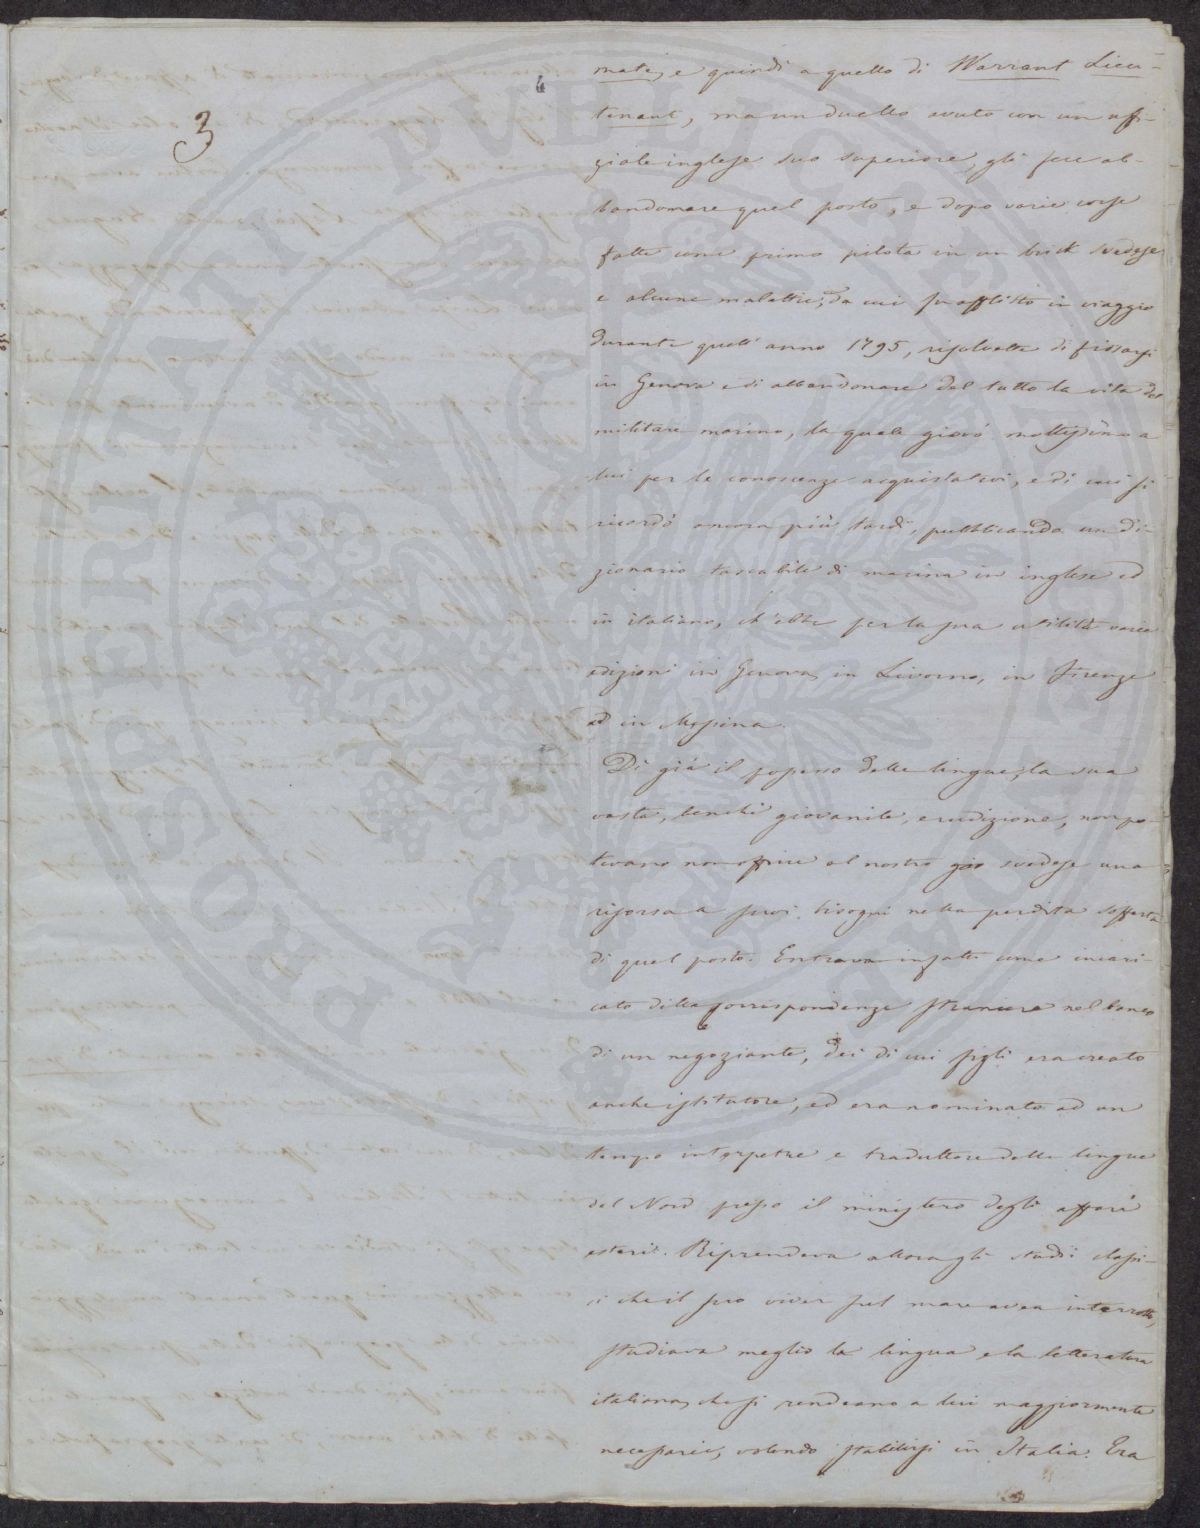 4
3
mate, e quindi a quello di Warrant Lieu-
tenant, ma un duello avuto con un uffi-
ziale inglese suo superiore, gli fece ab-
bandonare quel posto, e dopo varie corse
fatte come primo pilota in un brick svedese
e alcune malattie, da cui fu afflitto in viaggio
durante quell'anno 1795, risolvette di fissarsi
in Genova e di abbandonare del tutto la vita del
militare marino, la quale giovò moltissimo a
lui per le conoscenze acquistatevi, e di cui si
ricordò ancora più tardi, pubblicando un di-
zionario tascabile di marina in inglese ed
in italiano, ch'ebbe per la sua utilità varie
edizioni in Genova, in Livorno, in Firenze
ed in Messina.
Di già il possesso delle lingue, la sua
vasta, benchè giovanile, erudizione, non po-
tevano non offrire al nostro svedese una
risorsa a suoi bisogni nella perdita sofferta
di quel posto. Entrava infatti come incari-
cato della corrispondenza straniera nel banco
di un negoziante, dei di cui figli era creato
anche istitutore, ed era nominato ad un
tempo interpetre e traduttore delle lingue
del Nord presso il ministero degli affari
esteri. Riprendeva allora gli studi classi-
ci che il suo viver sul mare avea interrotto,
studiava meglio la lingua e la letteratura
italiana, che si rendeano a lui maggiormente
necessarie, volendo stabilirsi in Italia. Era
PROSPERITATI PUBLICAE AUGENDAE